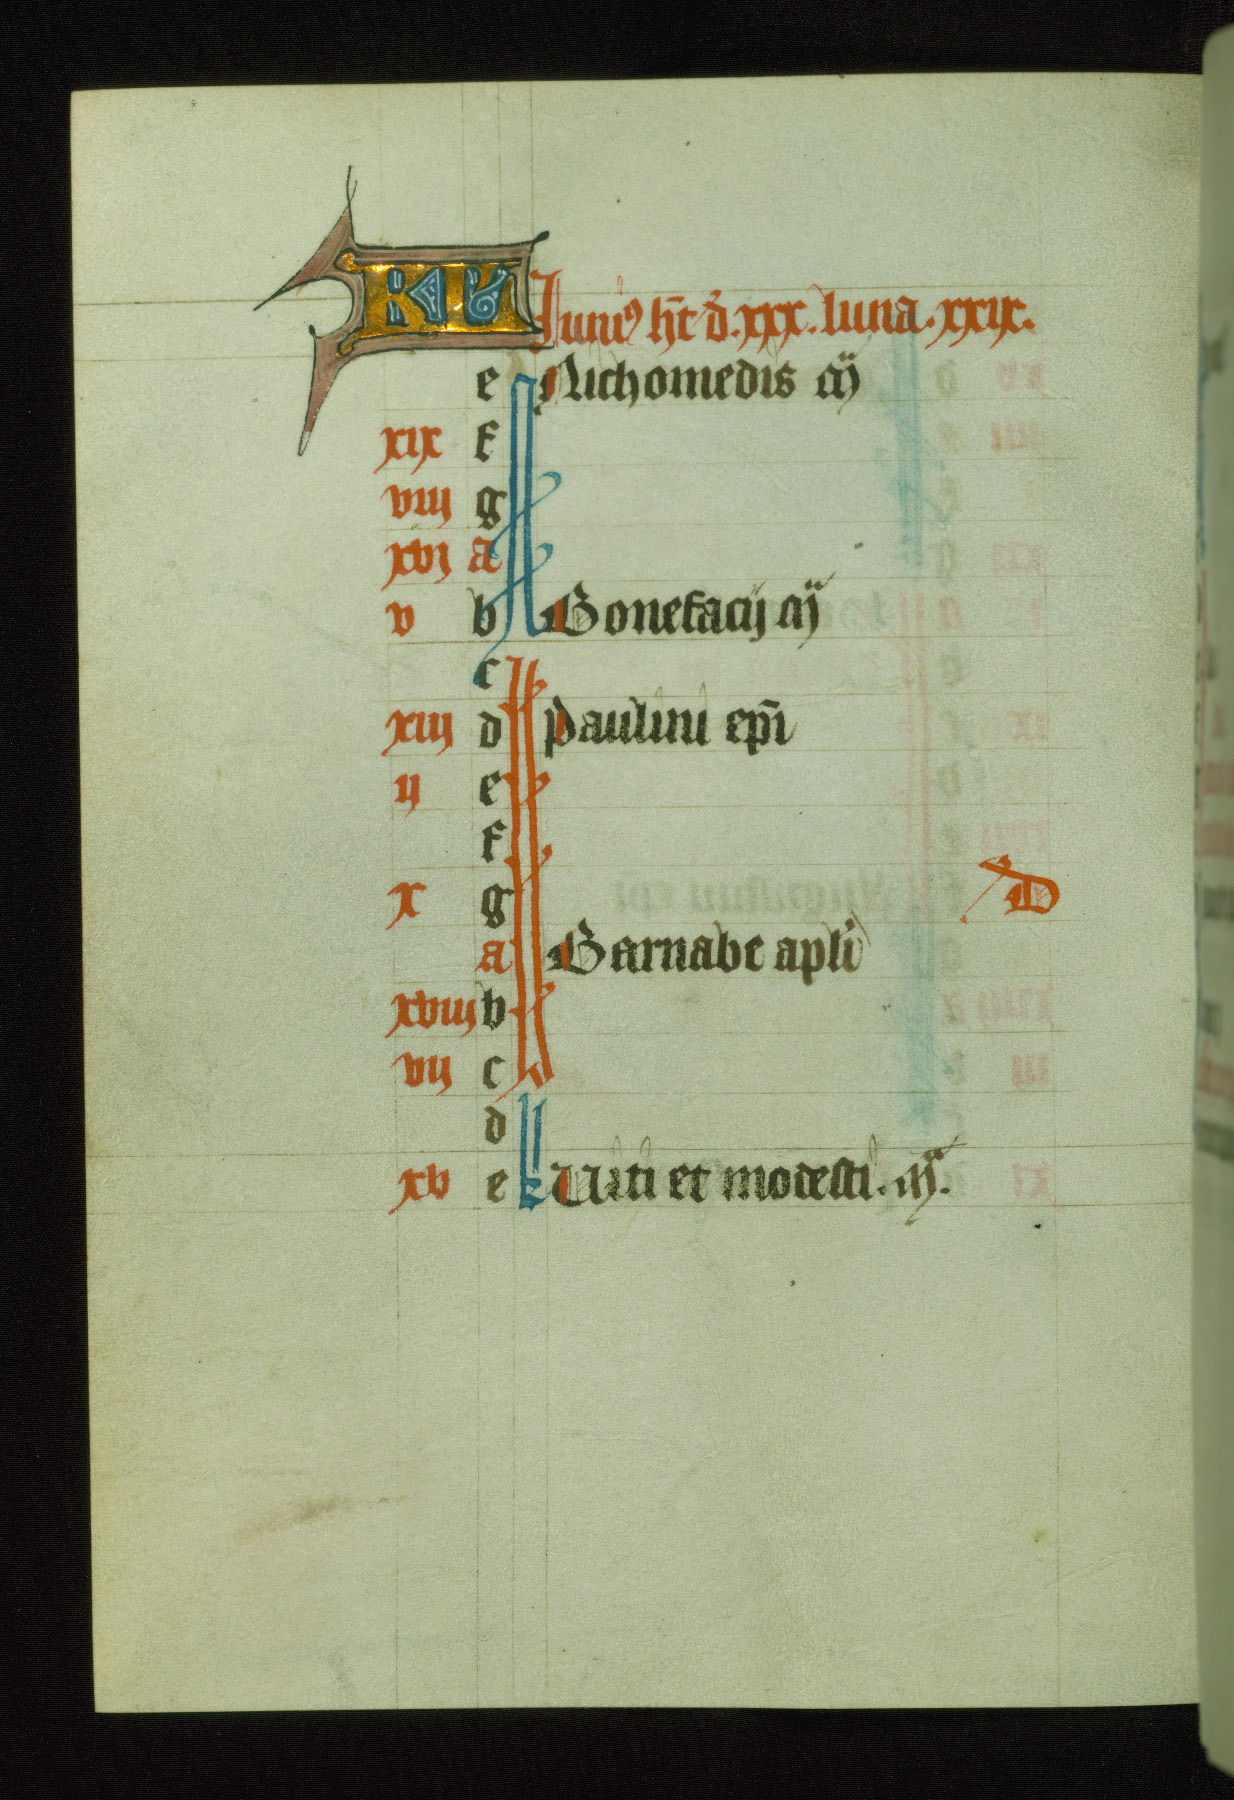 KL Junius hēt d̄. xxx. luna. xxix.
e Nichomedis m̄
xix f
viij g
xvj a
v b Bonefacij m̄
c
xiij d Paulini ep̄i
ij e
f
x g D
a Barnabe apl̄i
xviij b
vij c
d
xv e Uiti et modesti. m̄.